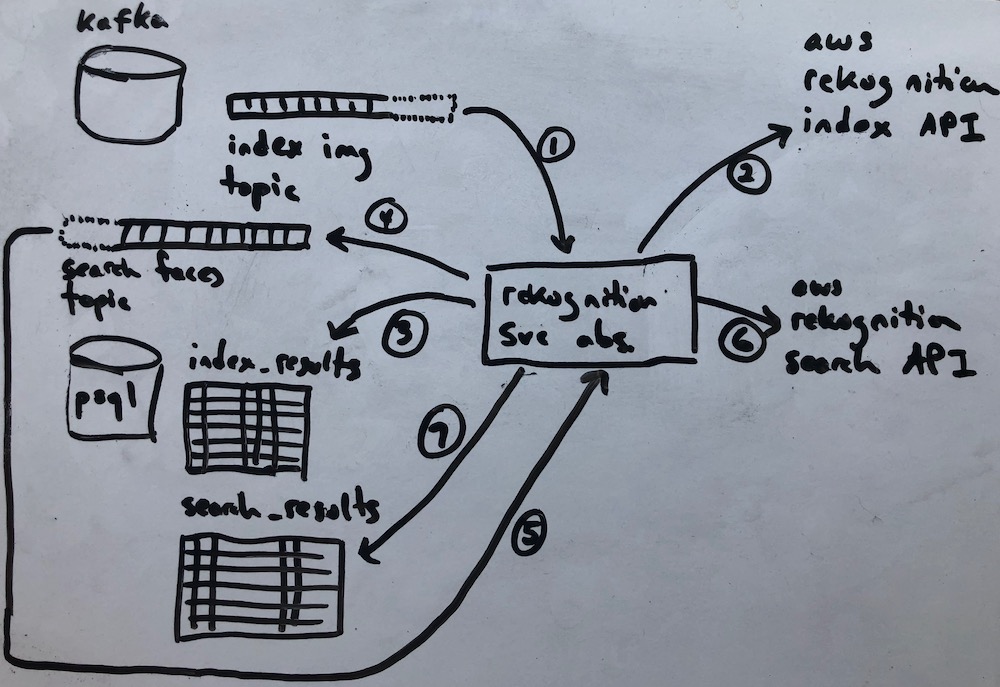 kafka
aws
rekognition
index API
index img
topic
1
2
4
search faces
topic
rekognition
svc abs.
aws
rekognition
search API
3
6
psql
index_results
7
search_results
5